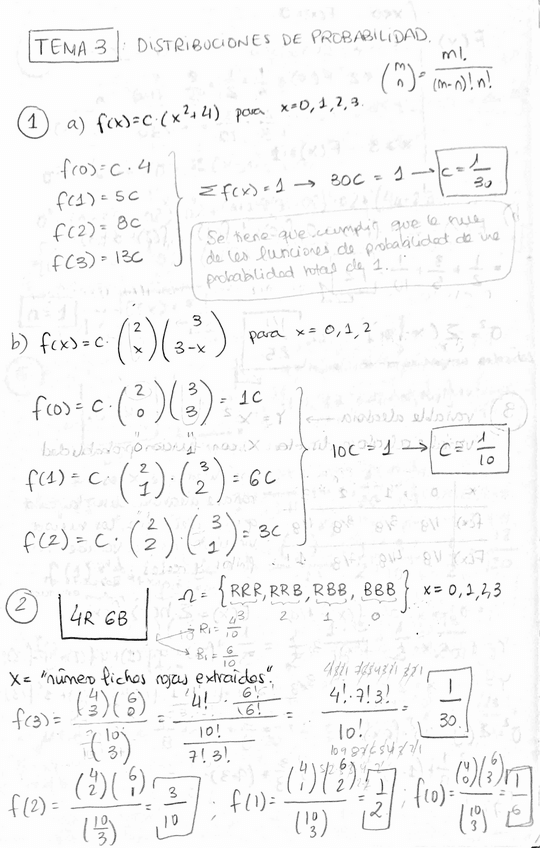 TEMA 3 : DISTRIBUCIONES DE PROBABILIDAD.
(m n) = m! / (m-n)! n!
1 a) f(x)=c·(x²+4) para x=0,1,2,3.
f(0)=c·4
f(1)=5c
f(2)=8c
f(3)=13c
Σf(x)=1 → 30c = 1 → c=1/30
Se tiene que cumplir que la suma
de las funciones de probabilidad de una
probabilidad total de 1.
b) f(x)=c·(2 x)(3 3-x) para x=0,1,2
f(0)=c·(2 0)(3 3)=1c
1 1
f(1)=c·(2 1)·(3 2)=6c
f(2)=c·(2 2)·(3 1)=3c
10c=1 → c=1/10
2 4R 6B Ω={RRR, RRB, RBB, BBB} x=0,1,2,3
2 1 0
R₁=4/10
B₁=6/10
X= "número fichas rojas extraídas".
f(3)=(4 3)(6 0)/(10 3)=4!·6!/6!/10!/7!3!=4!·7!3!/10!=1/30.
f(2)=(4 2)(6 1)/(10 3)=3/10 ; f(1)=(4 1)(6 2)/(10 3)=1/2 ; f(0)=(4 0)(6 3)/(10 3)=1/6